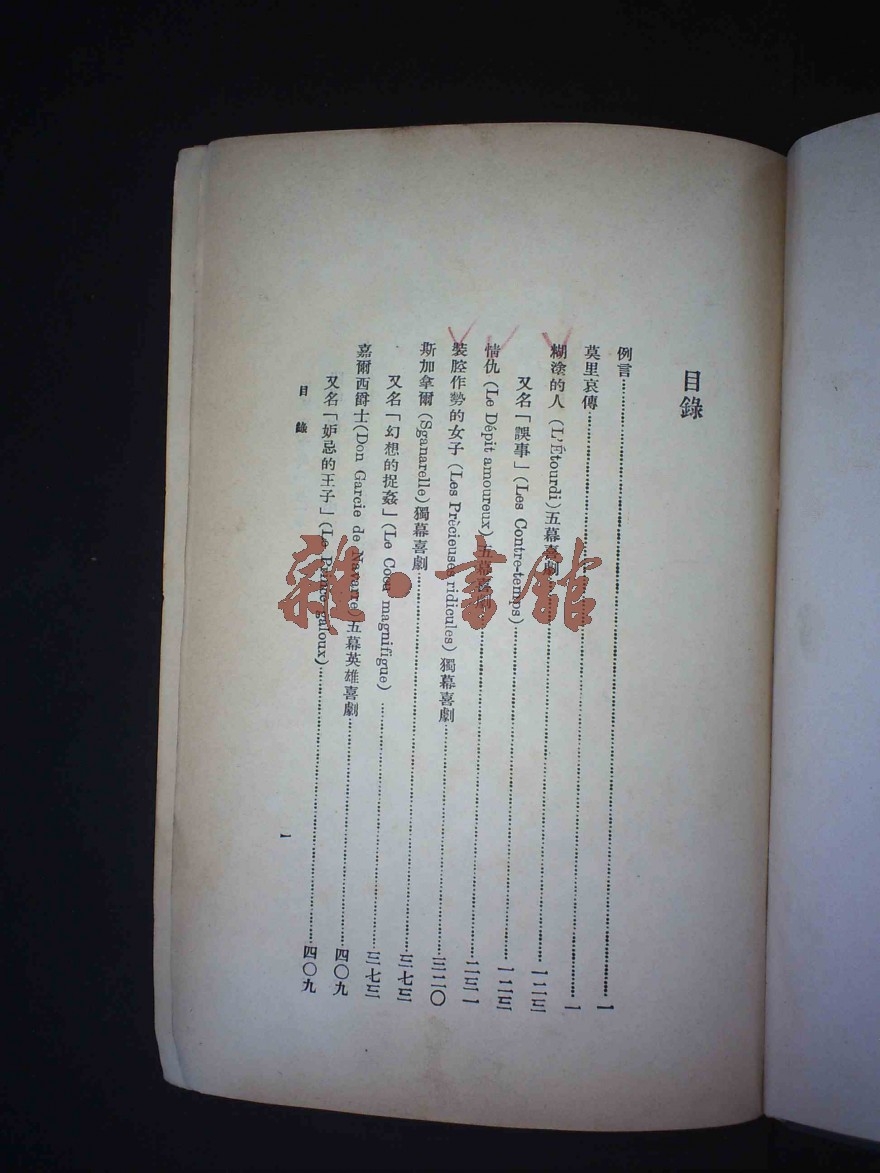 目錄
例言……一
莫里哀傳……一
糊塗的人 (L'Étourdi) 五幕喜劇……一二三
又名「誤事」(Les Contre-temps)……一二三
情仇 (Le Dépit amoureux) 五幕喜劇……二三一
裝腔作勢的女子 (Les Prècieuses ridicules) 獨幕喜劇……三二〇
斯加拿爾 (Sganarelle) 獨幕喜劇……三七三
又名「幻想的捉姦」(Le Cocu magnifigue)……三七三
嘉爾西爵士 (Don Garcie de Navarre) 五幕英雄喜劇……四〇九
又名「妒忌的王子」(Le Prince jaloux)……四〇九
目錄
1
雜·書館